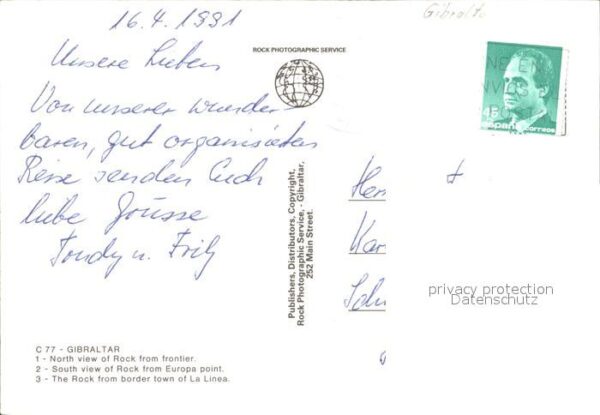 16.4.1991
Gibralta
ROCK PHOTOGRAPHIC SERVICE
Unsere Lieben
Von unserer wunder
baren, gut organisierten
Reise senden Euch
liebe Grüsse
u. Fritz
España correos
Publishers, Distributors, Copyright,
Rock Photographic Service, - Gibraltar,
252 Main Street.
Her
Kar
privacy protection
Datenschutz
C 77 - GIBRALTAR
1 - North view of Rock from frontier.
2 - South view of Rock from Europa point.
3 - The Rock from border town of La Linea.